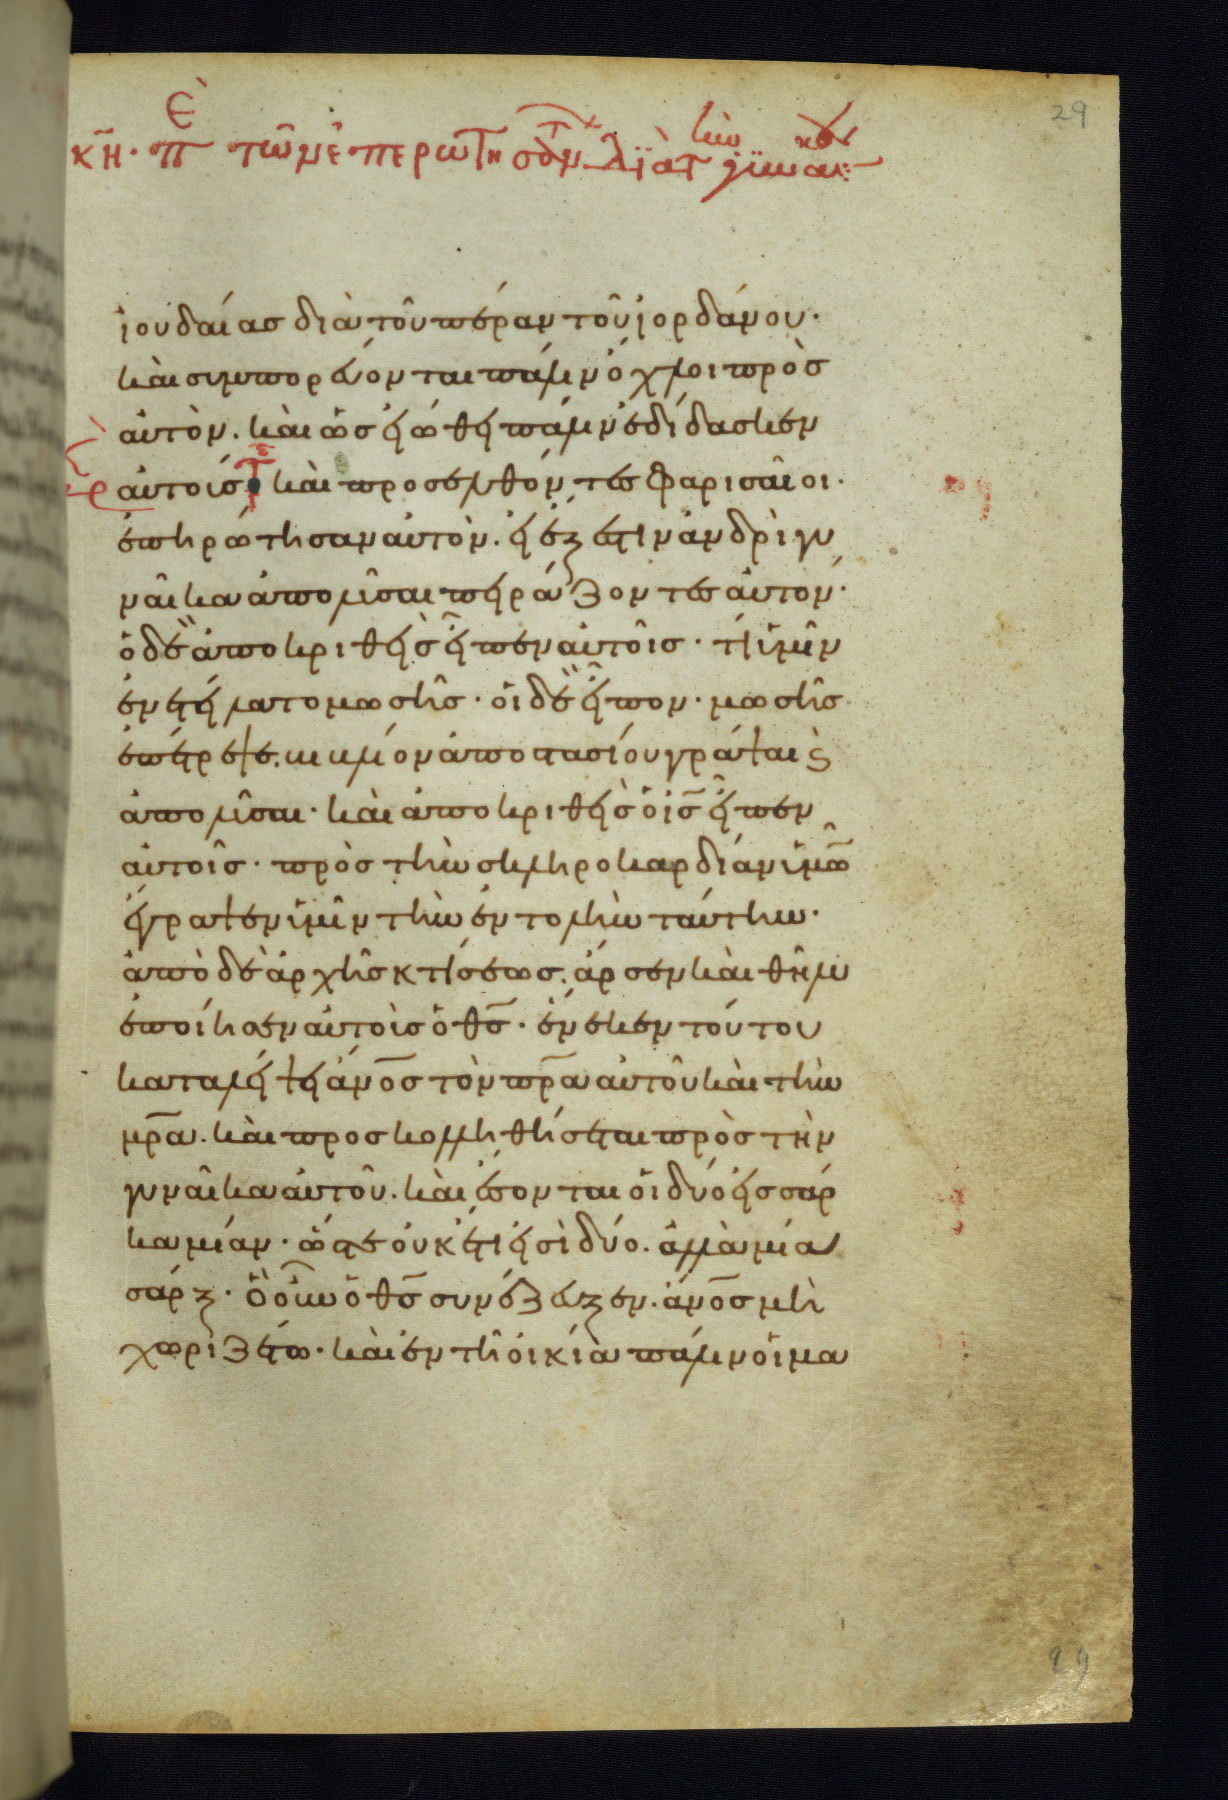 29
κη. περὶ τῶν ἐπερωτησάντων
ἰουδαίασ διὰ τοῦ πέραν τοῦ ἰορδάνου·
καὶ συμπορεύονται πάλιν ὄχλοι πρὸσ
αὐτὸν. καὶ ὡσ εἰώθει πάλιν ἐδίδασκεν
αὐτοίσ καὶ προσελθόντεσ φαρισαῖοι·
ἐπηρώτησαν αὐτὸν. εἰ ἔξεστιν ἀνδρὶ γυ
ναῖκα ἀπολῦσαι πειράζοντεσ αὐτόν·
ὁ δὲ ἀποκριθεὶσ εἶπεν αὐτοῖσ· τί ὑμῖν
ἐνετείλατο μωσῆσ· οἱ δὲ εἶπον· μωσῆσ
ἐπέτρεψε. βιβλίον ἀποστασίου γράψαι ϗ
ἀπολῦσαι· καὶ ἀποκριθεὶσ ὁ ἰσ̅ εἶπεν
αὐτοῖσ· πρὸσ τὴν σκληροκαρδίαν ὑμῶ̅
ἔγραψεν ὑμῖν τὴν ἐντολὴν ταύτην·
ἀπὸ δὲ ἀρχῆσ κτίσεωσ. ἄρσεν καὶ θῆλυ
ἐποίησεν αὐτοὶσ ὁ θσ̅· ἕνεκεν τούτου
καταλείψει ἀνο̅σ τὸν πρ̅α αὐτοῦ καὶ τὴν
μρ̅α. καὶ προσκολληθήσεται πρὸσ τὴν
γυναῖκα αὐτοῦ. καὶ ἔσονται οἱ δύο εἰσ σάρ
κα μίαν· ὥστε οὐκ ἔτι εἰσὶ δύο. ἀλλὰ μία
σάρξ· ὃ οὖν ὁ θσ̅ συνέζευξεν. ἀνο̅σ μὴ
χωριζέτω· καὶ ἐν τῆ οἰκία πάλιν οἱ μα
29